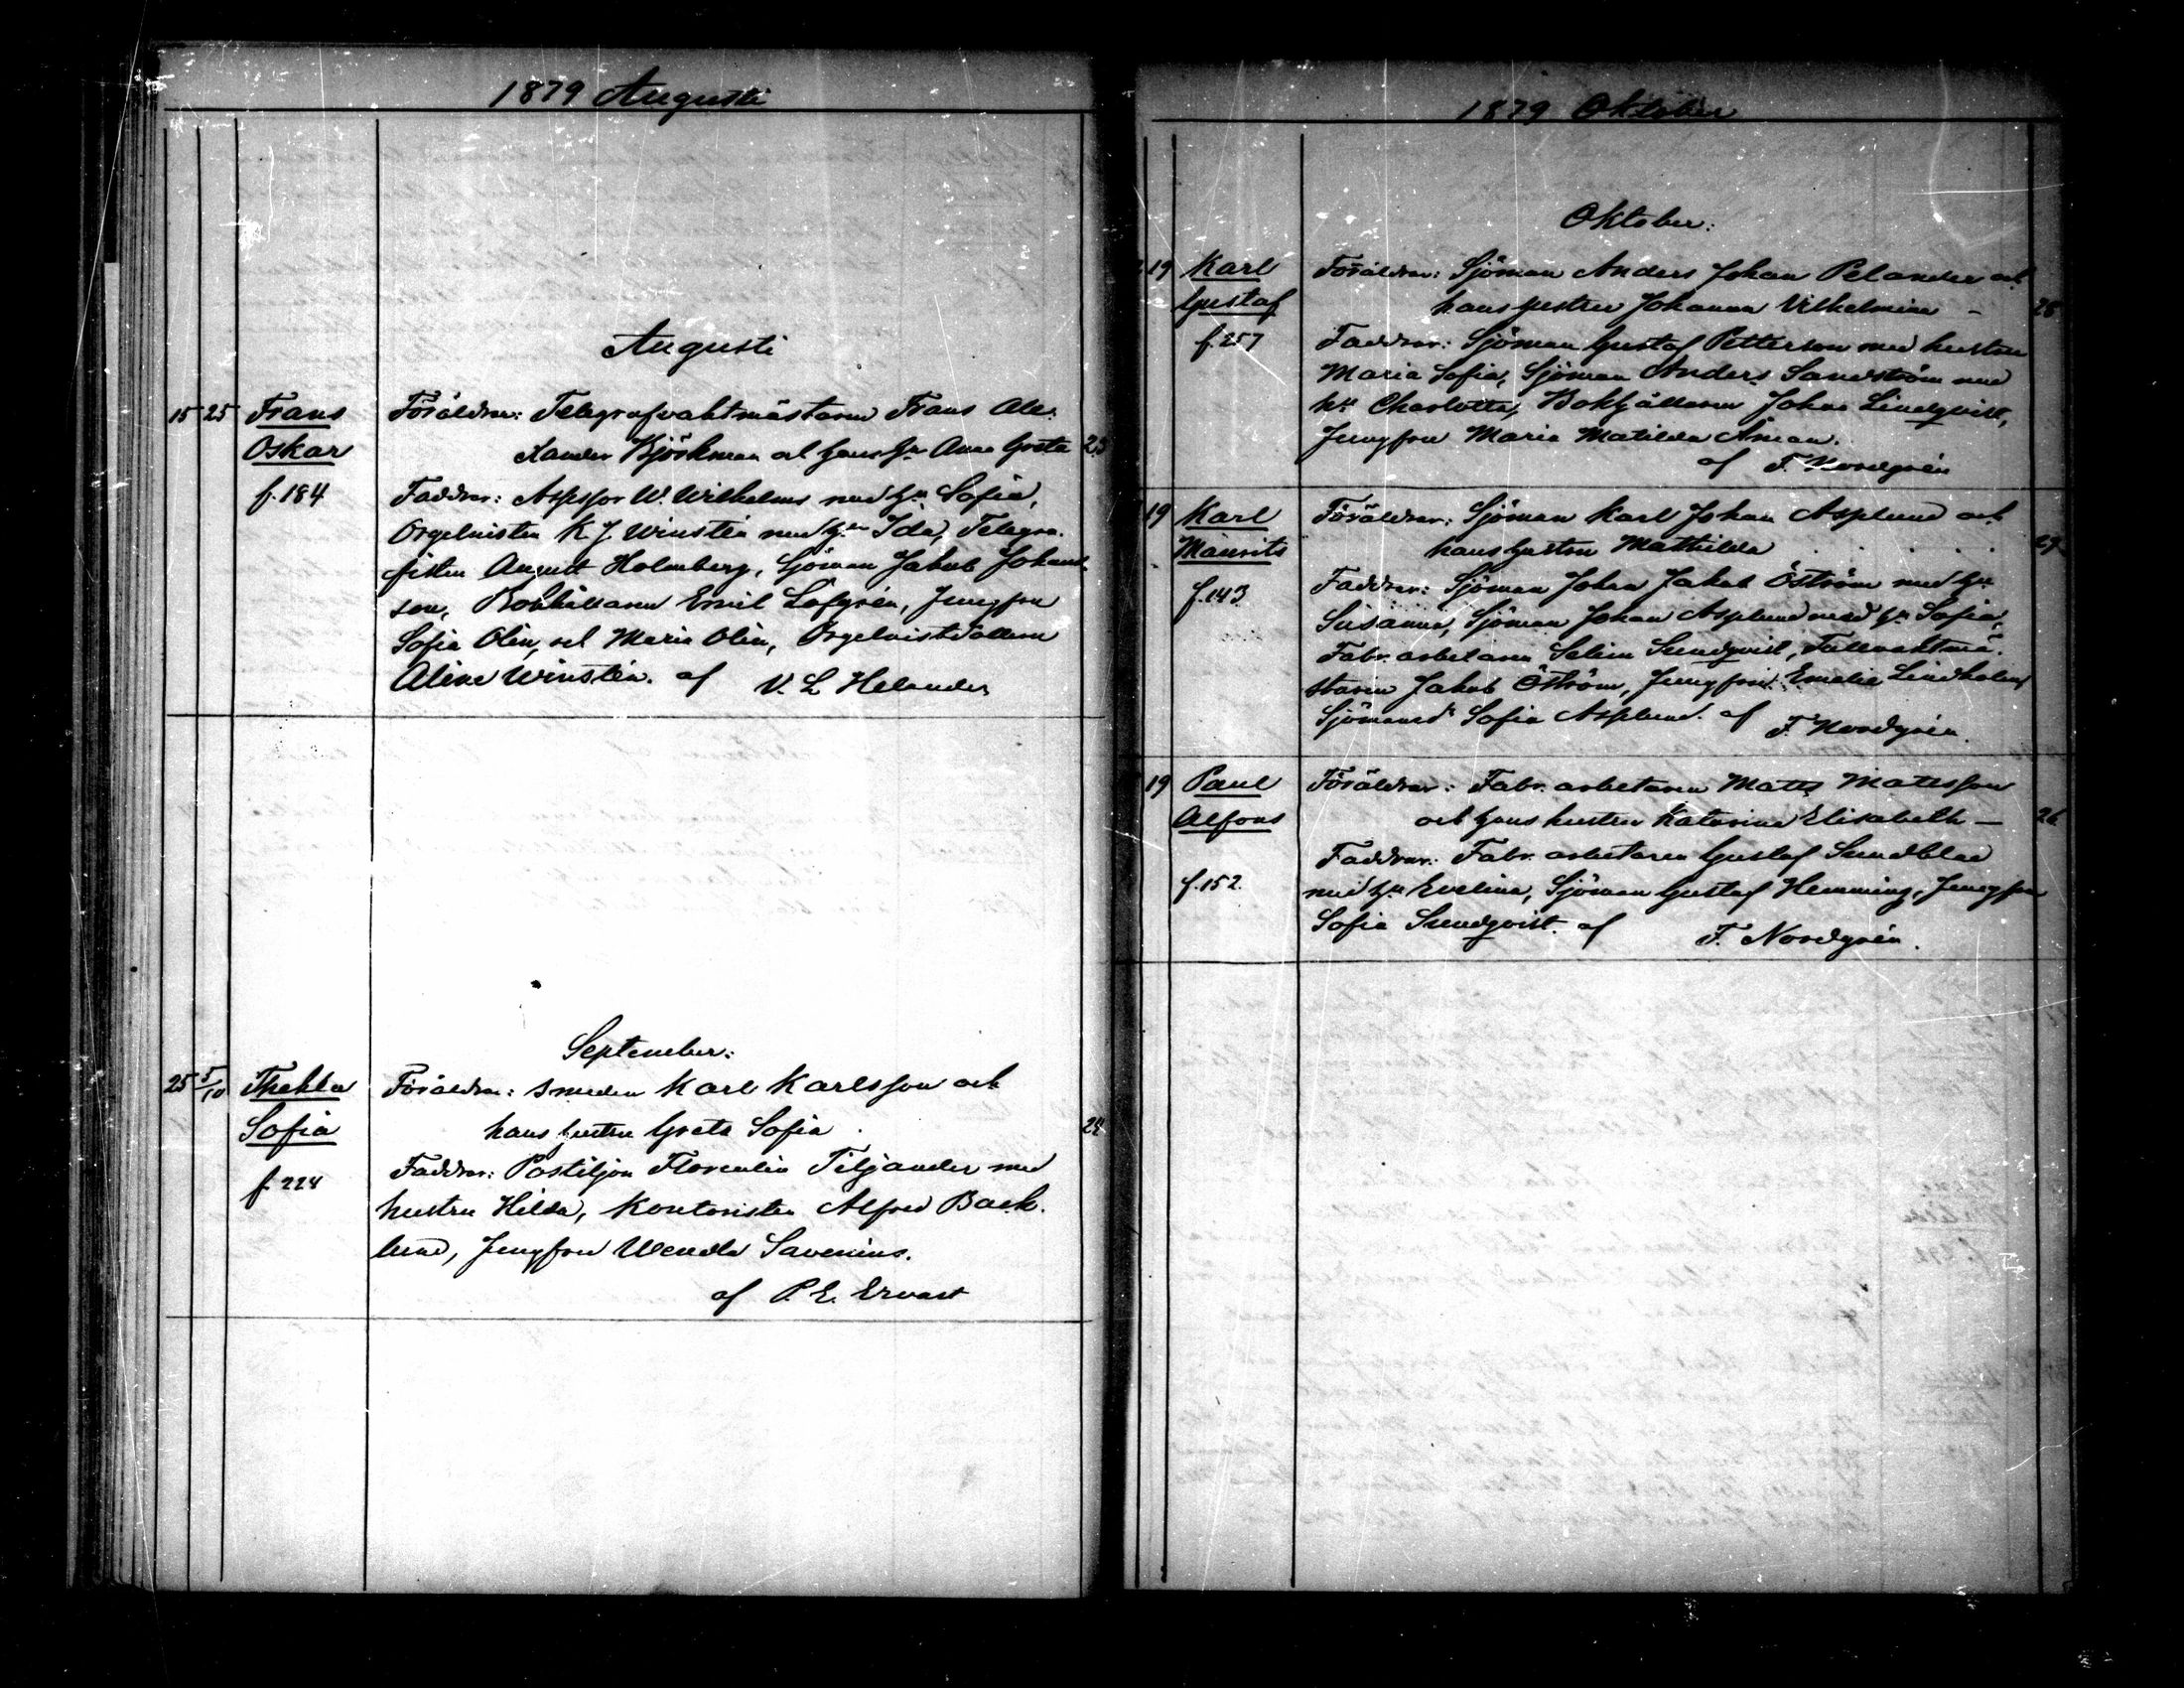 1879 Augusti
Augusti
15 25 Frans Föräldrar: Telegrafvaktmästaren Frans Ale-
Oskar xander Björkman och hans hu Anna Greta 23
f. 184 Faddrar: Assessor W. Wilhelms med hu Sofia,
Orgelnisten K J. Winstén med hu Ida, Telegra-
fisten August Holmberg, Sjöman Jakob Johans-
son, Bokhållaren Emil Löfgrén, Jungfru
Sofia Olin, och Maria Olin, Orgelnistdottern
Aline Winstén. af V. L Helander
September:
25 5/10 Thekla Föräldrar: smeden Karl Karlsson och
Sofia hans hustru Greta Sofia 24
f. 224 Faddrar: Postiljon Florentin Tiljander med
hustru Hilda, Kontoristen Alfred Back-
lund, Jungfru Wendla Savenius.
af P. E. Ervast
1879 Oktober
Oktober:
19 Karl Föräldrar: Sjöman Anders Johan Pelander och
Gustaf hans hustru Johanna Vilhelmina –
f. 257 Faddrar: Sjöman Gustaf Petterson med hustru
Maria Sofia, Sjöman Anders Sandström med
hu Charlotta, Bokhållaren Johan Lindqvist,
Jungfru Maria Matilda Åman.
af F. Nordgrén
19 Karl Föräldrar: Sjöman Karl Johan Asplund och
Maurits hans hustru Mathilda
f. 143 Faddrar: Sjöman Johan Jakob Öström med hu
Susanna, Sjöman Johan Asplund med hu Sofia,
Fabr. arbetaren Selim Sundqvist, Tullvaktmä-
staren Jakob Öström, Jungfru Emelie Lindholm
Sjömansd Sofia Asplund. af F. Nordgrén.
19 Paul Föräldrar: Fabr. arbetaren Matts Mattsson
Alfons och hans hustru Katarina Elisabeth – 26
f. 152. Faddrar: Fabr. arbetaren Gustaf Sundblad
med hu Evelina, Sjöman Gustaf Hemming, Jungfru
Sofia Sundqvist. af F. Nordgrén.